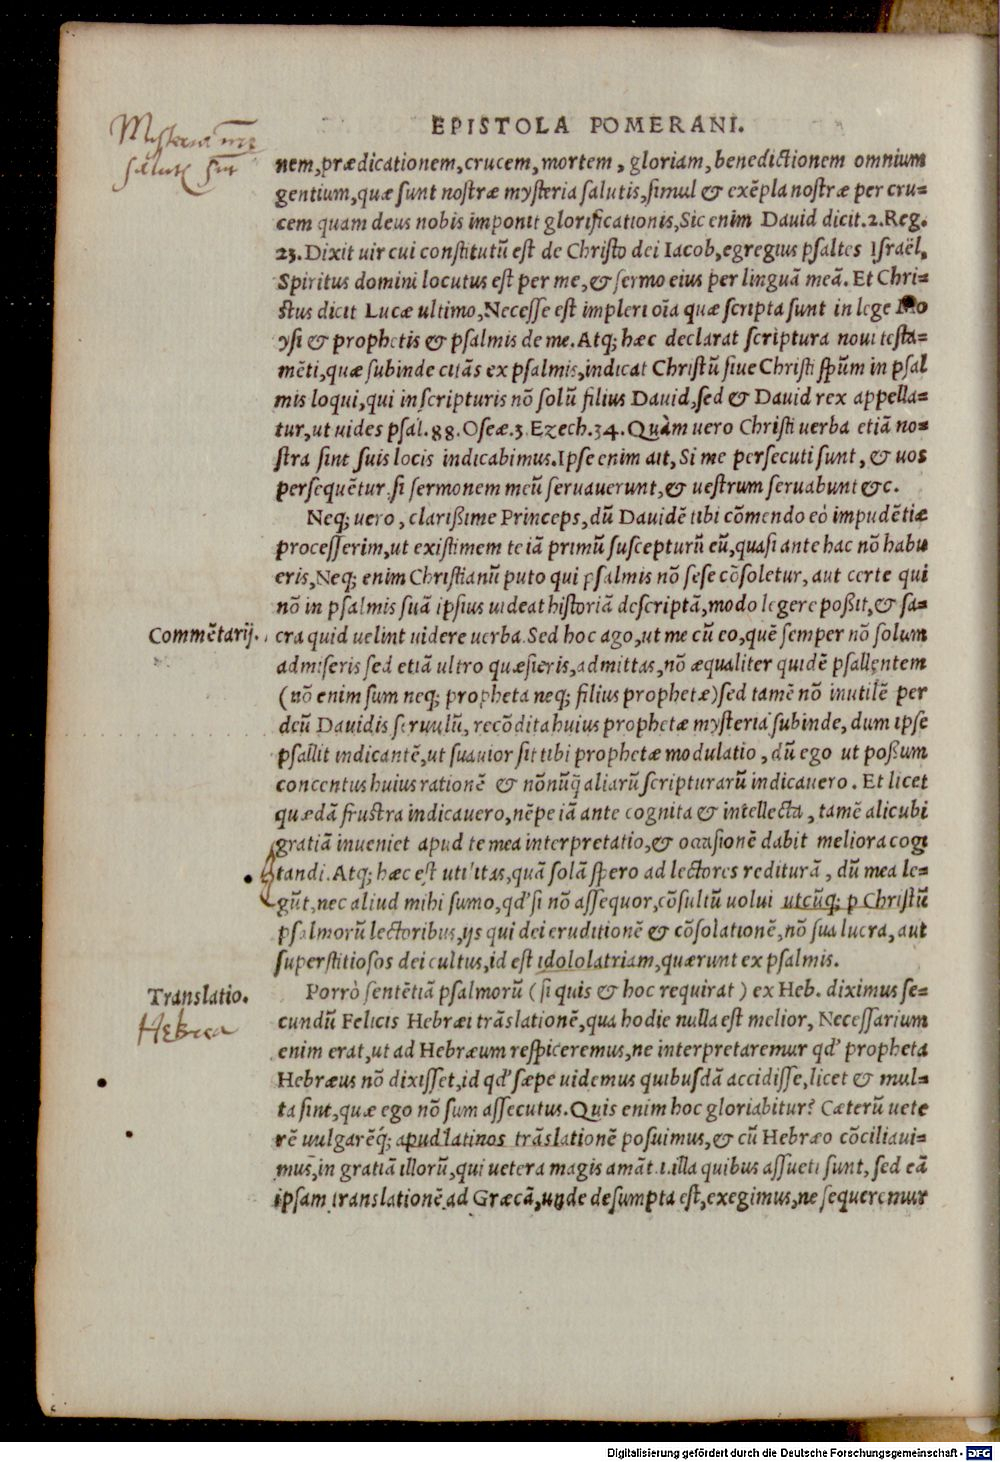 EPISTOLA POMERANI.
Mysteria nrae
salutis sunt
nem, prædicationem, crucem, mortem, gloriam, benedictionem omnium
gentium, quæ sunt nostræ mysteria salutis, simul & exẽpla nostræ per cru=
cem quam deus nobis imponit glorificationis, Sic enim Dauid dicit. 2. Reg.
23. Dixit uir cui constitutũ est de Christo dei Iacob, egregius psaltes Israël,
Spiritus domini locutus est per me, & sermo eius per linguã meã. Et Chri=
stus dicit Lucæ ultimo, Necesse est impleri oĩa quæ scripta sunt in lege Mo
ysi & prophetis & psalmis de me. Atq; hæc declarat scriptura noui testa=
mẽti, quæ subinde citãs ex psalmis, indicat Christũ siue Christi spũm in psal
mis loqui, qui in scripturis nõ solũ filius Dauid, sed & Dauid rex appella=
tur, ut uides psal. 88. Oseæ. 3. Ezech. 34. Quàm uero Christi uerba etiã no=
stra sint suis locis indicabimus. Ipse enim ait, Si me persecuti sunt, & uos
persequẽtur. si sermonem meũ seruauerunt, & uestrum seruabunt &c.
Neq; uero, clarißime Princeps, dũ Dauidẽ tibi cõmendo eò impudẽtiæ
processerim, ut existimem te iã primũ suscepturũ eũ, quasi ante hac nõ habu
eris, Neq; enim Christianũ puto qui psalmis nõ sese cõsoletur, aut certe qui
nõ in psalmis suã ipsius uideat historiã descriptã, modo legere poßit, & sa=
Commẽtarij.
cra quid uelint uidere uerba. Sed hoc ago, ut me cũ eo, quẽ semper nõ solum
admiseris sed etiã ultro quæsieris, admittas, nõ æqualiter quidẽ psallentem
(nõ enim sum neq; propheta neq; filius prophetæ) sed tamẽ nõ inutilẽ per
deũ Dauidis seruulũ, recõdita huius prophetæ mysteria subinde, dum ipse
psallit indicantẽ, ut suauior sit tibi prophetæ modulatio, dũ ego ut poßum
concentus huius rationẽ & nõnũq̃ aliarũ scripturarũ indicauero. Et licet
quædã frustra indicauero, nẽpe iã ante cognita & intellecta, tamẽ alicubi
gratiã inueniet apud te mea interpretatio, & occasionẽ dabit meliora cogi
tandi. Atq; hæc est utilitas, quã solã spero ad lectores redituram, dũ mea le=
gũt, nec aliud mihi sumo, qd' si nõ assequor, cõsultũ uolui utcũq; p Christũ
psalmorũ lectoribus, ijs qui dei eruditionẽ & cõsolationẽ, nõ sua lucra, aut
superstitiosos dei cultus, id est idololatriam, quærunt ex psalmis.
Translatio.
Hebrea
Porrò sentẽtiã psalmorũ (si quis & hoc requirat) ex Heb. diximus se=
cundũ Felicis Hebræi trãslationẽ, qua hodie nulla est melior, Necessarium
enim erat, ut ad Hebræum respiceremus, ne interpretaremur qd' propheta
Hebræus nõ dixisset, id qd' sæpe uidemus quibusdã accidisse, licet & mul=
ta sint, quæ ego nõ sum assecutus. Quis enim hoc gloriabitur? Cæterũ uete
rẽ uulgarẽq; apud latinos trãslationẽ posuimus, & cũ Hebræo cõciliaui=
mus, in gratiã illorũ, qui uetera magis amãt .i. illa quibus assueti sunt, sed eã
ipsam translationẽ ad Græcã, unde desumpta est, exegimus, ne sequeremur
Digitalisierung gefördert durch die Deutsche Forschungsgemeinschaft - DFG